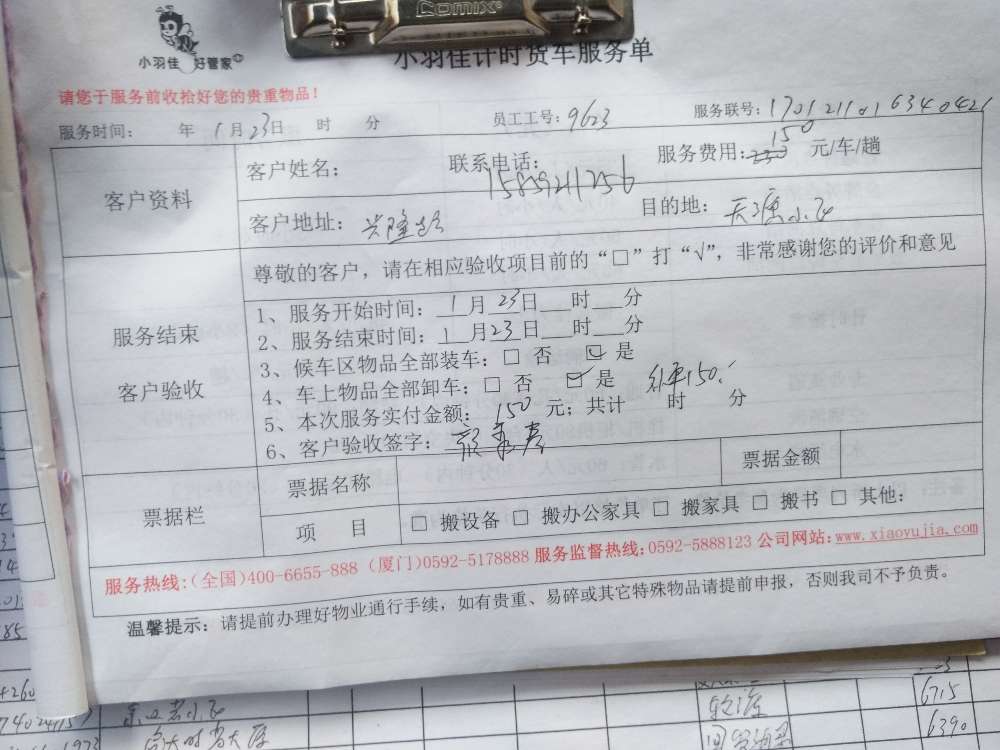 Comix
小羽佳 好管家
小羽佳计时货车服务单
请您于服务前收拾好您的贵重物品！
服务时间： 年 1月23日 时 分 员工工号：9623 服务联号：170121101634042
客户资料
客户姓名： 联系电话：15859211256 服务费用：150 元/车/趟
客户地址：兴隆 目的地：天 小区
服务结束
客户验收
尊敬的客户，请在相应验收项目前的“□”打“√”，非常感谢您的评价和意见
1、服务开始时间：1月23日 时 分
2、服务结束时间：1月23日 时 分
3、候车区物品全部装车：□ 否 ☑ 是
4、车上物品全部卸车：□ 否 ☑ 是 150
5、本次服务实付金额：150 元；共计 时 分
6、客户验收签字：
票据栏
票据名称 票据金额
项 目 □ 搬设备 □ 搬办公家具 □ 搬家具 □ 搬书 □ 其他：
服务热线：（全国）400-6655-888（厦门）0592-5178888 服务监督热线：0592-5888123 公司网站：www.xiaoyujia.com
温馨提示：请提前办理好物业通行手续，如有贵重、易碎或其它特殊物品请提前申报，否则我司不予负责。
6715
6390